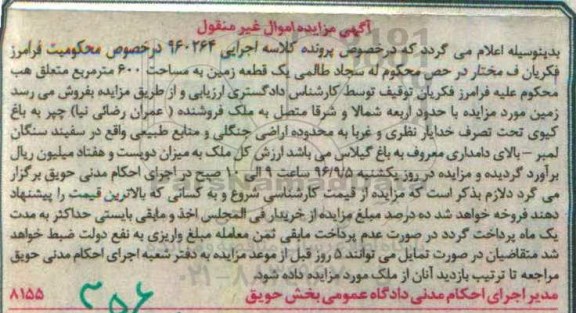 آگهی مزایده اموال غیر منقول
بدینوسیله اعلام می گردد که درخصوص پرونده کلاسه اجرایی ۹۶۰۲۶۴ درخصوص محکومیت فرامرز
فکریان ف مختار در حص محکوم له سجاد طالمی یک قطعه زمین به مساحت ۶۰۰ مترمربع متعلق هب
محکوم علیه فرامرز فکریان توقیف توسط کارشناس دادگستری ارزیابی و از طریق مزایده بفروش می رسد
زمین مورد مزایده با حدود اربعه شمالا و شرقا متصل به ملک فروشنده ( عمران رضائی نیا) چپر به باغ
کیوی تحت تصرف خدایار نظری و غربا به محدوده اراضی جنگلی و منابع طبیعی واقع در سفیند سنگان
لمبر - بالای دامداری معروف به باغ گیلاس می باشد ارزش کل ملک به میزان دویست و هفتاد میلیون ریال
برآورد گردیده و مزایده در روز یکشنبه ۹۶/۹/۵ ساعت ۹ الی ۱۰ صبح در اجرای احکام مدنی حویق برگزار
می گرد دلازم بذکر است که مزایده از قیمت کارشناسی شروع و به کسانی که بالاترین قیمت را پیشنهاد
دهند فروخه خواهد شد ده درصد مبلغ مزایده از خریدار فی المجلس اخذ و مابقی بایستی حداکثر به مدت
یک ماه پرداخت گردد در صورت عدم پرداخت مابقی ثمن معامله مبلغ واریزی به نفع دولت ضبط خواهد
شد متقاضیان در صورت تمایل می توانند ۵ روز قبل از موعد مزایده به دفتر شعبه اجرای احکام مدنی حویق
مراجعه تا ترتیب بازدید آنان از ملک مورد مزایده داده شود.
مدیر اجرای احکام مدنی دادگاه عمومی بخش حویق
۸۱۵۵
۳۵۶